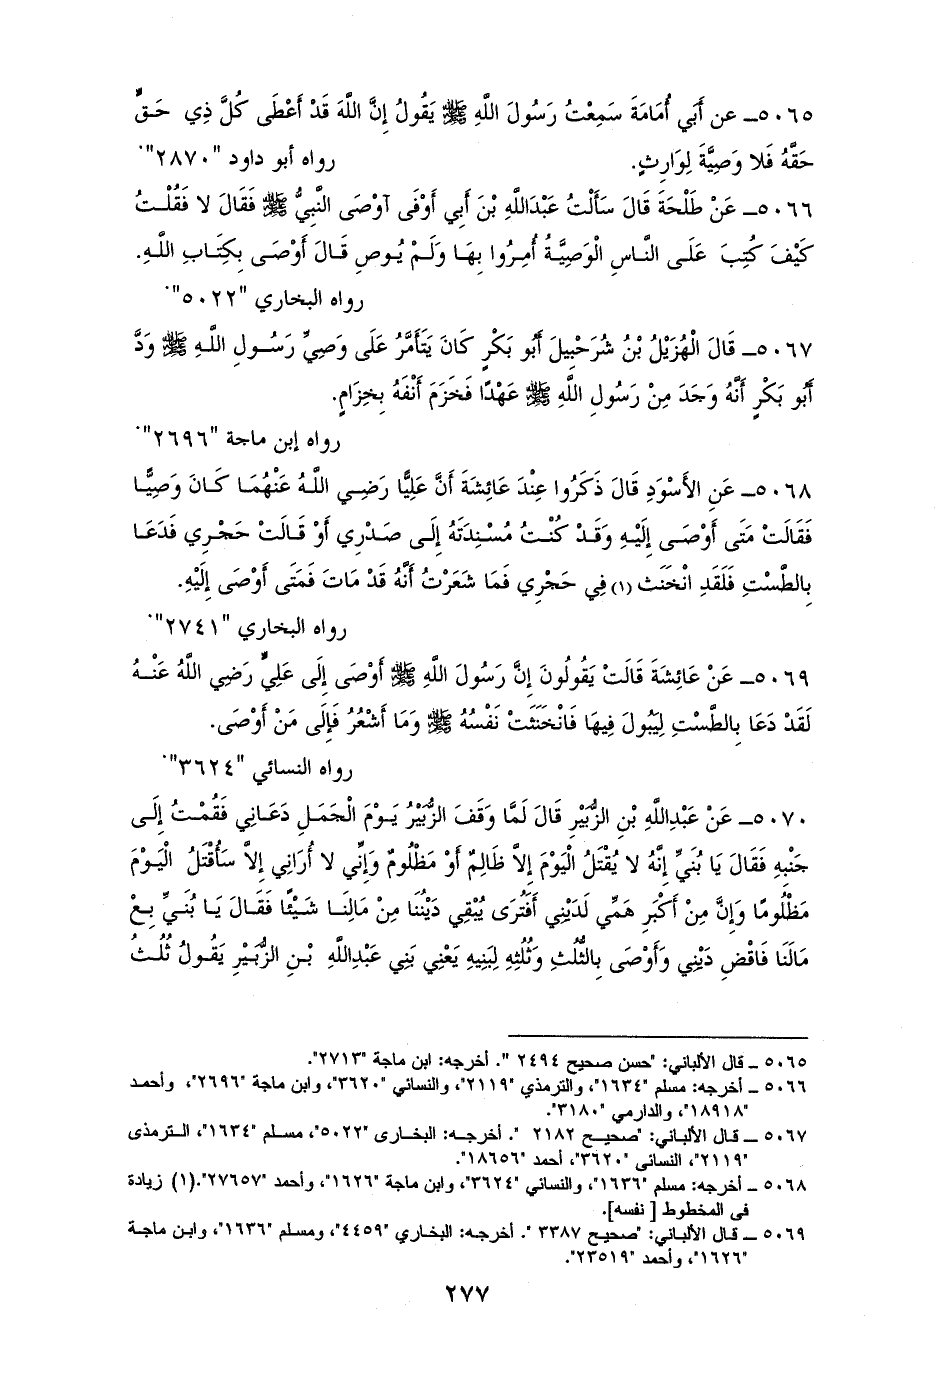 ٥٠٦٥ـ عن أَبِي أُمَامَةَ سَمِعْتُ رَسُولَ اللَّهِ ﷺ يَقُولُ إِنَّ اللَّهَ قَدْ أَعْطَى كُلَّ ذِي حَقٍّ
حَقَّهُ فَلا وَصِيَّةَ لِوَارِثٍ. رواه أبو داود "٢٨٧٠".
٥٠٦٦ـ عَنْ طَلْحَةَ قَالَ سَأَلْتُ عَبْدَاللَّهِ بْنَ أَبِي أَوْفَى آوْصَى النَّبِيُّ ﷺ فَقَالَ لا فَقُلْتُ
كَيْفَ كُتِبَ عَلَى النَّاسِ الْوَصِيَّةُ أُمِرُوا بِهَا وَلَمْ يُوصِ قَالَ أَوْصَى بِكِتَابِ اللَّهِ.
رواه البخاري "٥٠٢٢".
٥٠٦٧ـ قَالَ الْهُزَيْلُ بْنُ شُرَحْبِيلَ أَبُو بَكْرٍ كَانَ يَتَأَمَّرُ عَلَى وَصِيِّ رَسُولِ اللَّهِ ﷺ وَدَّ
أَبُو بَكْرٍ أَنَّهُ وَجَدَ مِنْ رَسُولِ اللَّهِ ﷺ عَهْدًا فَخَزَمَ أَنْفَهُ بِخِزَامٍ.
رواه إبن ماجة "٢٦٩٦".
٥٠٦٨ـ عَنِ الأَسْوَدِ قَالَ ذَكَرُوا عِنْدَ عَائِشَةَ أَنَّ عَلِيًّا رَضِي اللَّهُ عَنْهُمَا كَانَ وَصِيًّا
فَقَالَتْ مَتَى أَوْصَى إِلَيْهِ وَقَدْ كُنْتُ مُسْنِدَتَهُ إِلَى صَدْرِي أَوْ قَالَتْ حَجْرِي فَدَعَا
بِالطَّسْتِ فَلَقَدِ انْخَنَث (١) فِي حَجْرِي فَمَا شَعَرْتُ أَنَّهُ قَدْ مَاتَ فَمَتَى أَوْصَى إِلَيْهِ.
رواه البخاري "٢٧٤١".
٥٠٦٩ـ عَنْ عَائِشَةَ قَالَتْ يَقُولُونَ إِنَّ رَسُولَ اللَّهِ ﷺ أَوْصَى إِلَى عَلِيٍّ رَضِي اللَّهُ عَنْهُ
لَقَدْ دَعَا بِالطَّسْتِ لِيَبُولَ فِيهَا فَانْخَنَثَتْ نَفْسُهُ ﷺ وَمَا أَشْعُرُ فَإِلَى مَنْ أَوْصَى.
رواه النسائي "٣٦٢٤".
٥٠٧٠ـ عَنْ عَبْدِاللَّهِ بْنِ الزُّبَيْرِ قَالَ لَمَّا وَقَفَ الزُّبَيْرُ يَوْمَ الْجَمَلِ دَعَانِي فَقُمْتُ إِلَى
جَنْبِهِ فَقَالَ يَا بُنَيِّ إِنَّهُ لا يُقْتَلُ الْيَوْمَ إِلاَّ ظَالِمٌ أَوْ مَظْلُومٌ وَإِنِّي لا أُرَانِي إِلاَّ سَأُقْتَلُ الْيَوْمَ
مَظْلُومًا وَإِنَّ مِنْ أَكْبَرِ هَمِّي لَدَيْنِي أَفَتُرَى يُبْقِي دَيْنُنَا مِنْ مَالِنَا شَيْئًا فَقَالَ يَا بُنَيِّ بِعْ
مَالَنَا فَاقْضِ دَيْنِي وَأَوْصَى بِالثُّلُثِ وَثُلُثِهِ لِبَنِيهِ يَعْنِي بَنِي عَبْدِاللَّهِ بْنِ الزُّبَيْرِ يَقُولُ ثُلُثُ
٥٠٦٥ ـ قال الألباني: "حسن صحيح ٢٤٩٤ ". أخرجه: ابن ماجة "٢٧١٣".
٥٠٦٦ ـ أخرجه: مسلم "١٦٣٤"، والترمذي "٢١١٩"، والنسائي "٣٦٢٠"، وابن ماجة "٢٦٩٦"، وأحمد
"١٨٩١٨"، والدارمي "٣١٨٠".
٥٠٦٧ ـ قال الألباني: "صحيح ٢١٨٢ ". أخرجه: البخارى "٥٠٢٢"، مسلم "١٦٣٤"، الترمذى
"٢١١٩"، النسائى "٣٦٢٠"، أحمد "١٨٦٥٦".
٥٠٦٨ ـ أخرجه: مسلم "١٦٣٦"، والنسائي "٣٦٢٤"، وابن ماجة "١٦٢٦"، وأحمد "٢٧٦٥٧".(١) زيادة
فى المخطوط [ نفسه].
٥٠٦٩ ـ قال الألباني: "صحيح ٣٣٨٧ ". أخرجه: البخاري "٤٤٥٩"، ومسلم "١٦٣٦"، وابن ماجة
"١٦٢٦"، وأحمد "٢٣٥١٩".
٢٧٧